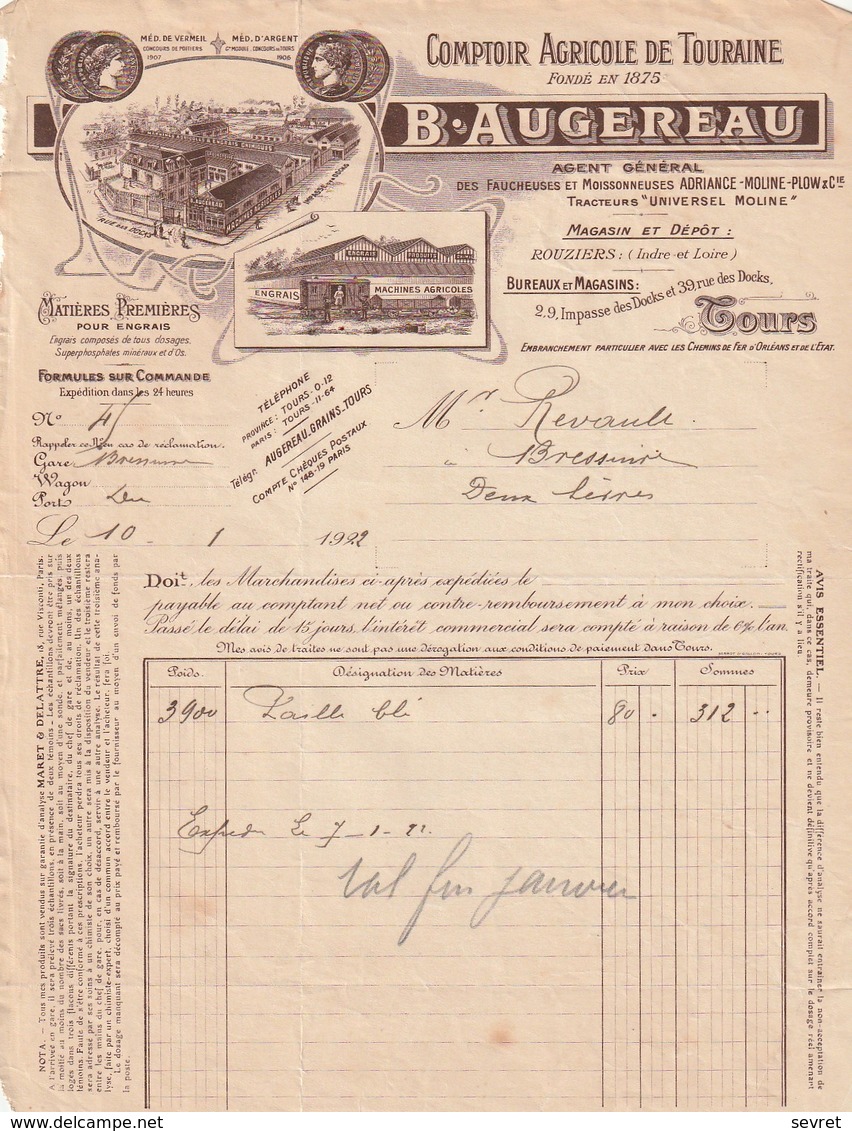 MÉD. DE VERMEIL
CONCOURS DE POITIERS
1907
MÉD. D'ARGENT
Gd MODULE, CONCOURS DE TOURS
1906
COMPTOIR AGRICOLE DE TOURAINE
FONDÉ EN 1875
B. AUGEREAU
AGENT GÉNÉRAL
DES FAUCHEUSES ET MOISSONNEUSES ADRIANCE-MOLINE-PLOW & CIE
TRACTEURS "UNIVERSEL MOLINE"
MAGASIN ET DÉPÔT :
ROUZIERS : (Indre et Loire)
BUREAUX ET MAGASINS :
2.9, Impasse des Docks et 39, rue des Docks,
Tours
EMBRANCHEMENT PARTICULIER AVEC LES CHEMINS DE FER D'ORLÉANS ET DE L'ÉTAT.
ENGRAIS CHIMIQUES
B. AUGEREAU
RUE DES DOCKS
ENGRAIS
PRODUITS
ENGRAIS
MACHINES AGRICOLES
MATIÈRES PREMIÈRES
POUR ENGRAIS
Engrais composés de tous dosages.
Superphosphates minéraux et d'Os.
FORMULES SUR COMMANDE
Expédition dans les 24 heures
TÉLÉPHONE
PROVINCE : TOURS-0-12
PARIS : TOURS-11-64
Télégr. AUGEREAU-GRAINS-TOURS
COMPTE CHÈQUES POSTAUX
N° 148-19 PARIS
N° 45
Rappeler ce N° en cas de réclamation.
Gare Bressuire
Wagon
Port Du
Mr Revault.
à Bressuire
Deux Sèvres
Le 10 - 1 1922
Doit, les Marchandises ci-après expédiées le
payable au comptant net ou contre-remboursement à mon choix.
Passé le délai de 15 jours, l'intérêt commercial sera compté à raison de 6% l'an.
Mes avis de traites ne sont pas une dérogation aux conditions de paiement dans Tours.
Poids. Désignation des Matières Prix Sommes
3900 Paille blé 80 . 312 ..
Expédié Le 7-1-22.
Val fin janvier
NOTA. — Tous mes produits sont vendus sur garantie d'analyse MARET & DELATTRE, 18, rue Visconti, Paris.
A l'arrivée en gare, il sera prélevé trois échantillons, en présence de deux témoins - Les échantillons devront être pris sur
la moitié au moins du nombre des sacs livrés, soit à la main, soit au moyen d'une sonde, et parfaitement mélangés, puis
logés dans trois flacons différents portant la signature du destinataire, du chef de gare et de, au moins, un des deux
témoins. Faute de s'être conformé à ces prescriptions, l'acheteur perdra tous ses droits de réclamation. Un des échantillons
sera adressé par ses soins à un chimiste de son choix, un autre sera mis à la disposition du vendeur et le troisième restera
entre les mains du chef de gare, pour, en cas de désaccord, servir à une autre analyse. Le résultat de cette troisième ana-
lyse, faite par un chimiste-expert, choisi d'un commun accord entre le vendeur et l'acheteur, fera foi.
Le dosage manquant sera décompté au prix payé et remboursé par le fournisseur au moyen d'un envoi de fonds par
la poste.
AVIS ESSENTIEL. — Il reste bien entendu que la différence d'analyse ne saurait entraîner la non-acceptation de
ma traite qui, dans ce cas, demeure provisoire et ne devient définitive qu'après accord complet sur le dosage réel amenant
rectification s'il y a lieu.
www.delcampe.net
sevret